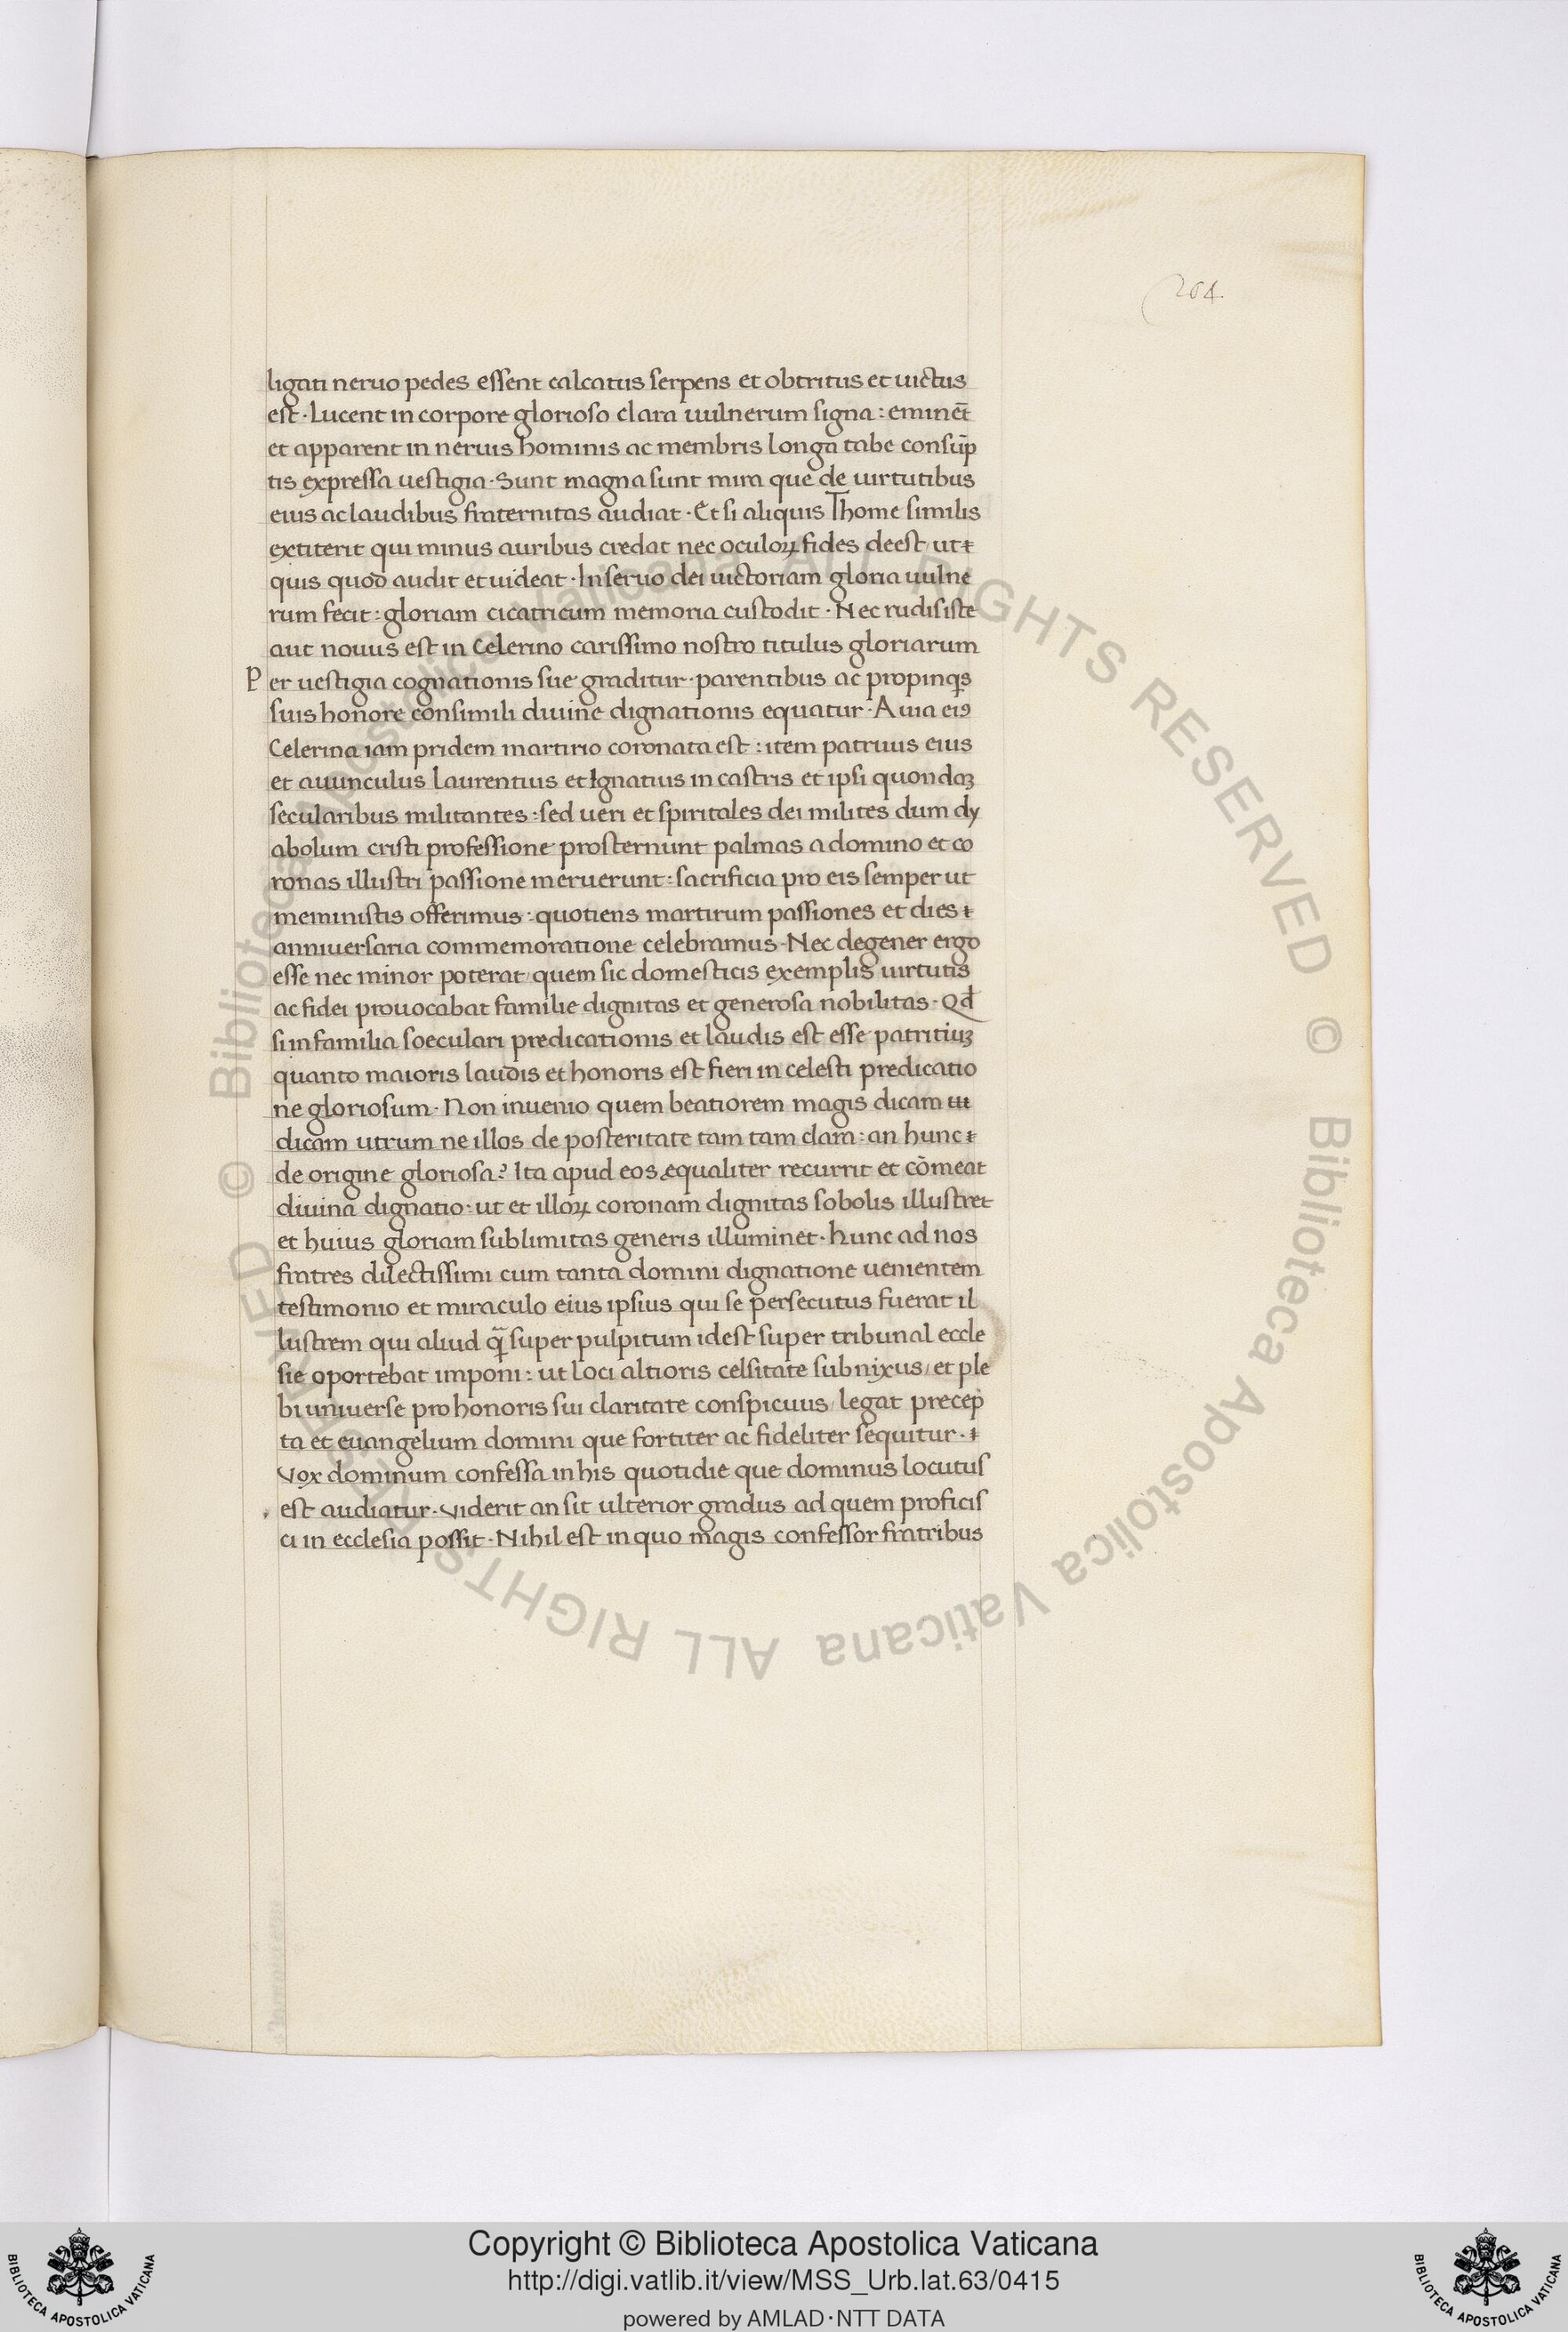 204
ligati neruo pedes essent calcatus serpens et obtritus et uictus
est · Lucent in corpore glorioso clara uulnerum signa : eminēt
et apparent in neruis hominis ac membris longa tabe consūp
tis expressa uestigia · Sunt magna sunt mira que de uirtutibus
eius ac laudibus fraternitas audiat · Et si aliquis Thome similis
extiterit qui minus auribus credat nec oculoꝝ fides deest / ut
quis quod audit et uideat · In seruo dei uictoriam gloria uulne
rum fecit : gloriam cicatricum memoria custodit · Nec rudis iste
aut nouus est in Celerino carissimo nostro titulus gloriarum
Per uestigia cognationis sue graditur · parentibus ac propinqs
suis honore consimili diuine dignationis equatur · Auia eiꝯ
Celerina iam pridem martirio coronata est : item patruus eius
et auunculus laurentius et Ignatius in castris et ipsi quondaꝫ
secularibus militantes : sed ueri et spiritales dei milites dum dy
abolum cristi professione prosternunt palmas a domino et co
ronas illustri passione meruerunt : sacrificia pro eis semper ut
meministis offerimus : quotiens martirum passiones et dies
anniuersaria commemoratione celebramus · Nec degener ergo
esse nec minor poterat / quem sic domesticis exemplis uirtutis
ac fidei prouocabat familie dignitas et generosa nobilitas · Qd̄
si in familia soeculari predicationis et laudis est esse patritiuꝫ
quanto maioris laudis et honoris est fieri in celesti predicatio
ne gloriosum · Non inuenio quem beatiorem magis dicam
dicam utrum ne illos de posteritate tam tam clara : an hunc
de origine gloriosa ? Ita apud eos equaliter recurrit et cōmeat
diuina dignatio : ut et illoꝝ coronam dignitas sobolis illustret
et huius gloriam sublimitas generis illuminet · hunc ad nos
fratres dilectissimi cum tanta domini dignatione uenientem
testimonio et miraculo eius ipsius qui se persecutus fuerat il
lustrem qui aliud q̄ super pulpitum idest super tribunal eccle
sie oportebat imponi : ut loci altioris celsitate subnixus / et ple
bi uniuerse pro honoris sui claritate conspicuus / legat precep
ta et euangelium domini que fortiter ac fideliter sequitur ·
Vox dominum confessa in his quotidie que dominus locutus
est audiatur · Viderit an sit ulterior gradus ad quem proficis
ci in ecclesia possit · Nihil est in quo magis confessor fratribus
© Biblioteca Apostolica Vaticana ALL RIGHTS RESERVED © Biblioteca Apostolica Vaticana ALL RIGHTS RESERVED
Copyright © Biblioteca Apostolica Vaticana
http://digi.vatlib.it/view/MSS_Urb.lat.63/0415
powered by AMLAD·NTT DATA
BIBLIOTECA APOSTOLICA VATICANA
BIBLIOTECA APOSTOLICA VATICANA